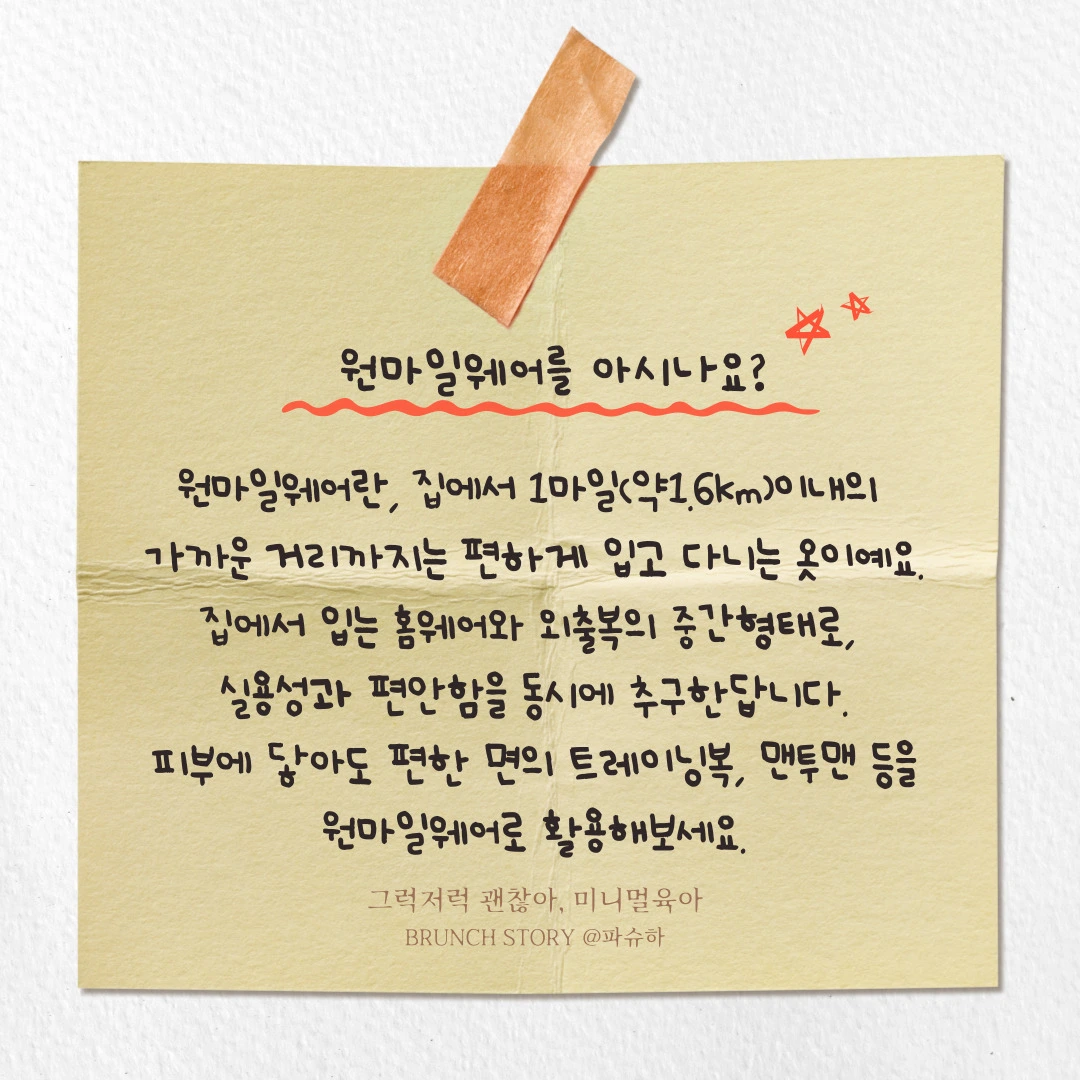 원마일웨어를 아시나요?
원마일웨어란, 집에서 1마일(약1.6km)이내의
가까운 거리까지는 편하게 입고 다니는 옷이예요.
집에서 입는 홈웨어와 외출복의 중간형태로,
실용성과 편안함을 동시에 추구한답니다.
피부에 닿아도 편한 면의 트레이닝복, 맨투맨 등을
원마일웨어로 활용해보세요.
그럭저럭 괜찮아, 미니멀육아
BRUNCH STORY @파슈하